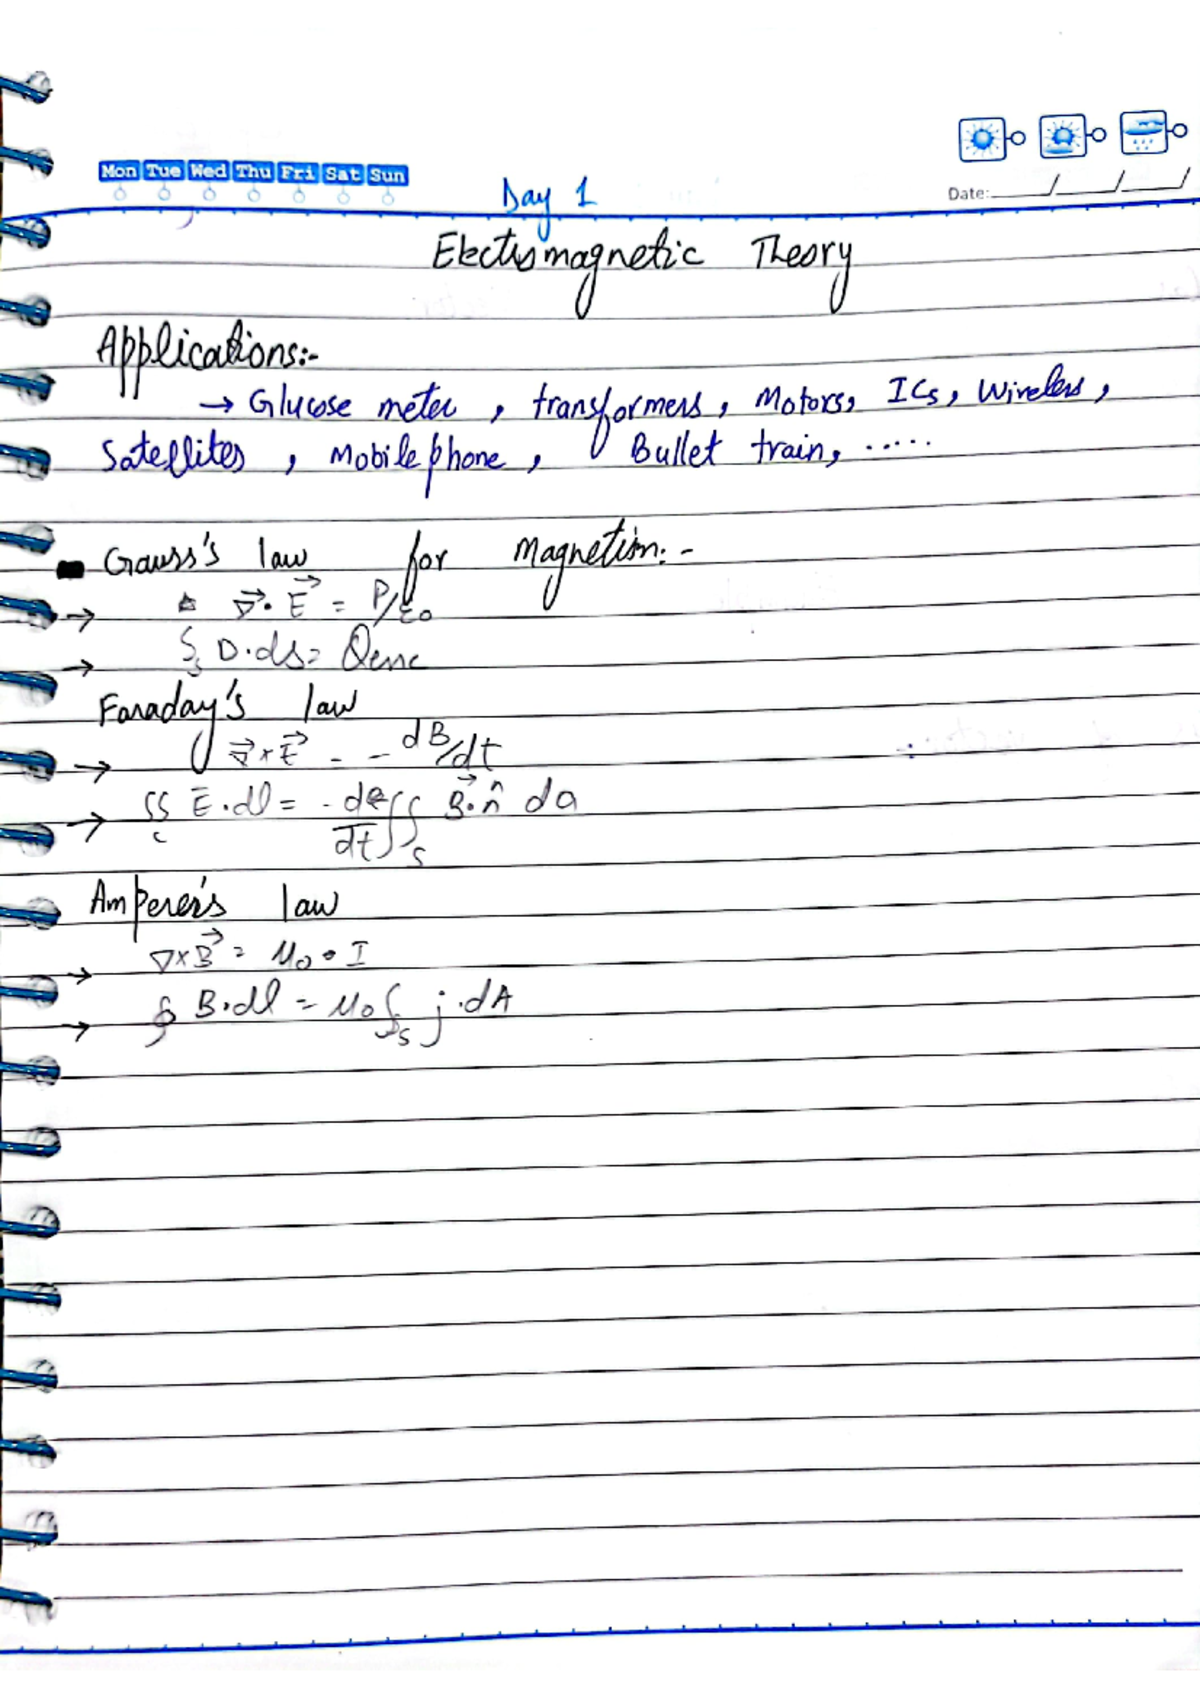 Mon Tue Wed Thu Fri Sat Sun
Date: / / /
Day 1
Electromagnetic Theory
Applications:-
→ Glucose meter , transformers , Motors, ICs, Wireless ,
Satellites , Mobile phone , Bullet train, .....
Gauss's law for Magnetism:-
→ ∇⃗. E⃗ = P/ε0
→ ∫s D.ds = Qenc
Faraday's law
→ ∇⃗×E⃗ - - dB/dt
→ ∫∫c E.dl = - d/dt ∫∫s B⃗.n̂ da
Amperer's law
→ ∇×B⃗ = μ0 • I
→ ∮ B.dl = μ0 ∫s j.dA